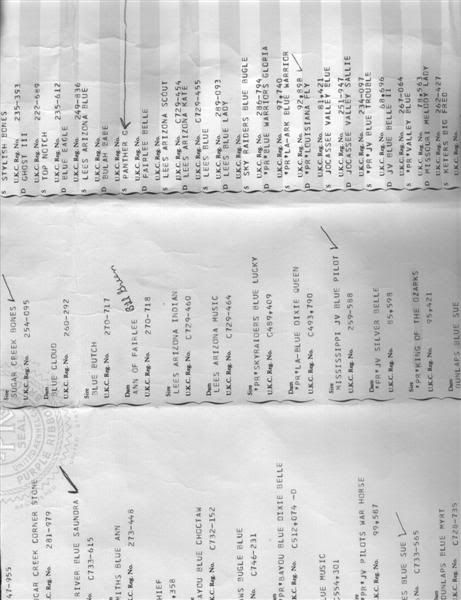 S STYLISH BONES
U.K.C. Reg. No. 235-393
D GHOST III
U.K.C. Reg. No. 222-689
S TOP NOTCH
U.K.C. Reg. No. 235-112
D BLUE EAGLE
U.K.C. Reg. No. 249-836
S LEES ARIZONA BLUE
U.K.C. Reg. No.
D BULAH BABE
U.K.C. Reg. No.
S PANTHER G
U.K.C. Reg. No.
D FAIRLEE BELLE
U.K.C. Reg. No.
S LEES ARIZONA SCOUT
U.K.C. Reg. No. C729-454
D LEES ARIZONA KATE
U.K.C. Reg. No. C729-455
S LEES BLUE
U.K.C. Reg. No. 289-093
D LEES BLUE LADY
U.K.C. Reg. No.
S SKY RAIDERS BLUE BUGLE
U.K.C. Reg. No. 286-794
D *PR*BLUE WARRIORS GLORIA
U.K.C. Reg. No. 97,740
S *PR*LA-ARK BLUE WARRIOR
U.K.C. Reg. No. 92,898
D *PR*LOUISIANA FLY
U.K.C. Reg. No. 81,421
S JOCASSEE VALLEY BLUE
U.K.C. Reg. No. 251-947
D JOCASSEE VALLEY SALLIE
U.K.C. Reg. No. 234-097
S *PR*JV BLUE TROUBLE
U.K.C. Reg. No. 68,696
D JV BLUE BELLE II
U.K.C. Reg. No. 267-064
S *PR*VALLEY BLUE
U.K.C. Reg. No. 78,463
D MISSOURI MELODY LADY
U.K.C. Reg. No. 265-427
S KETERS BIG FRED
U.K.C. Reg. No.
Sire
SUGAR CREEK BONES
U.K.C. Reg. No. 254-095
Dam
BLUE CLOUD
U.K.C. Reg. No. 260-292
Sire
BLUE BUTCH
U.K.C. Reg. No. 270-717
Dam
ANN OF FAIRLEE
U.K.C. Reg. No. 270-718
Sire
LEES ARIZONA INDIAN
U.K.C. Reg. No. C729-460
Dam
LEES ARIZONA MUSIC
U.K.C. Reg. No. C729-464
Sire
*PR*SKYRAIDERS BLUE LUCKY
U.K.C. Reg. No. C489,409
Dam
*PR*LA-BLUE DIXIE QUEEN
U.K.C. Reg. No. C493,790
Sire
MISSISSIPPI JV BLUE PILOT
U.K.C. Reg. No. 259-588
Dam
*PR*JV SILVER BELLE
U.K.C. Reg. No. 85,598
Sire
*PR*KING OF THE OZARKS
U.K.C. Reg. No. 95,421
Dam
DUNLAPS BLUE SUE
SEAL
PURPLE RIBBON
47-955
GAR CREEK CORNER STONE
No. 281-979
RIVER BLUE SAUNDRA
No. C733-615
MITHS BLUE ANN
No. 273-448
HIEF
*358
AYOU BLUE CHOCTAW
No. C732-152
NS BUGLE BLUE
No. C746-231
*PR*BAYOU BLUE DIXIE BELLE
No. C512,074 -D
UE MUSIC
C554,301
*PR*JV PILOTS WAR HORSE
No. 99,567
ES BLUE SUE
No. C733-565
DUNLAPS BLUE MYRT
No. C728-735